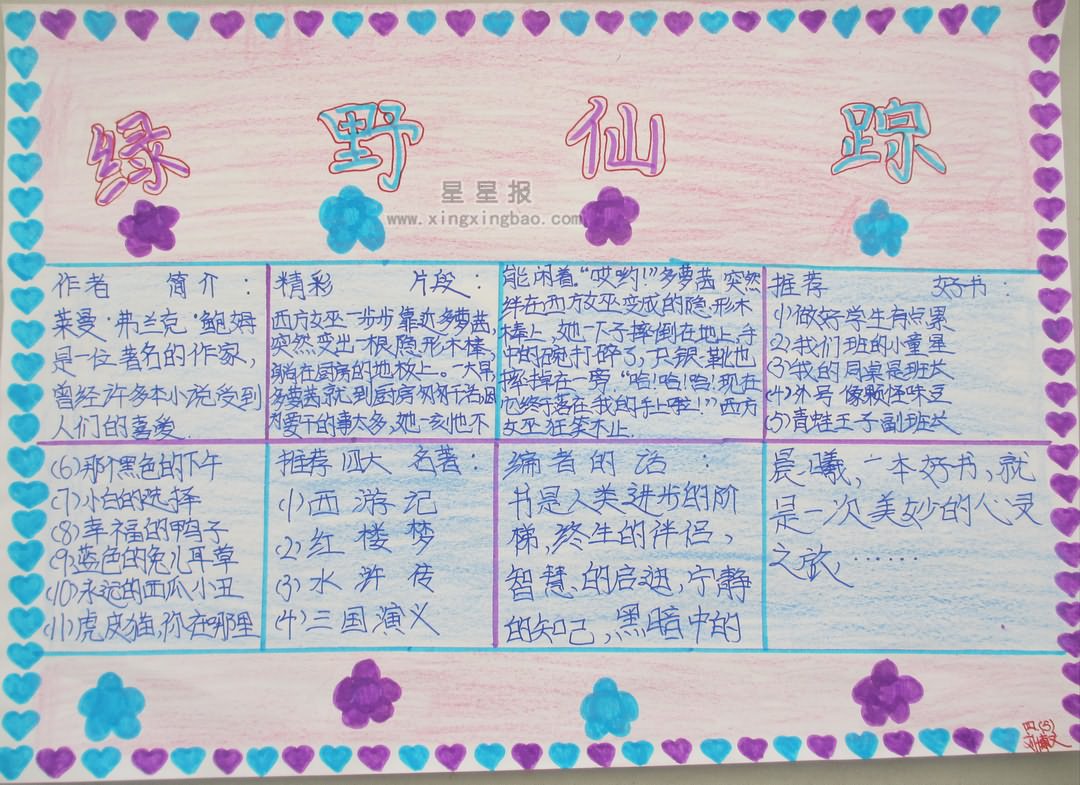 绿野仙踪
星星报
www.xingxingbao.com
作者 简介:
莱曼·弗兰克·鲍姆
是一位著名的作家,
曾经许多本小说受到
人们的喜爱.
精彩 片段:
西方女巫一步步靠近多萝茜,
突然变出一根隐形木棒,
躺在厨房的地板上。一大早
多萝茜就到厨房匆匆干活,因
为要干的事太多,她一刻也不
能闲着。“哎哟!”多萝茜突然
绊在西方女巫变成的隐形木
棒上,她一下子摔倒在地上,手
中的碗打碎了,一只银靴也
摔掉在一旁“哈!哈!哈!现在
它终于落在我的手上啦!”西方
女巫狂笑不止.
推荐 好书:
(1)做好学生有点累
(2)我们班的小童星
(3)我的同桌是班长
(4)外号像颗怪味豆
(5)青蛙王子副班长
(6)那个黑色的下午
(7)小白的选择
(8)幸福的鸭子
(9)蓝色的兔儿耳草
(10)永远的西瓜小丑
(11)虎皮猫,你在哪里
推荐四大名著:
(1)西游记
(2)红楼梦
(3)水浒传
(4)三国演义
编者的话:
书是人类进步的阶
梯,终生的伴侣,
智慧的启迪,宁静
的知己,黑暗中的
晨曦,一本好书,就
是一次美妙的心灵
之旅,……
四(3)